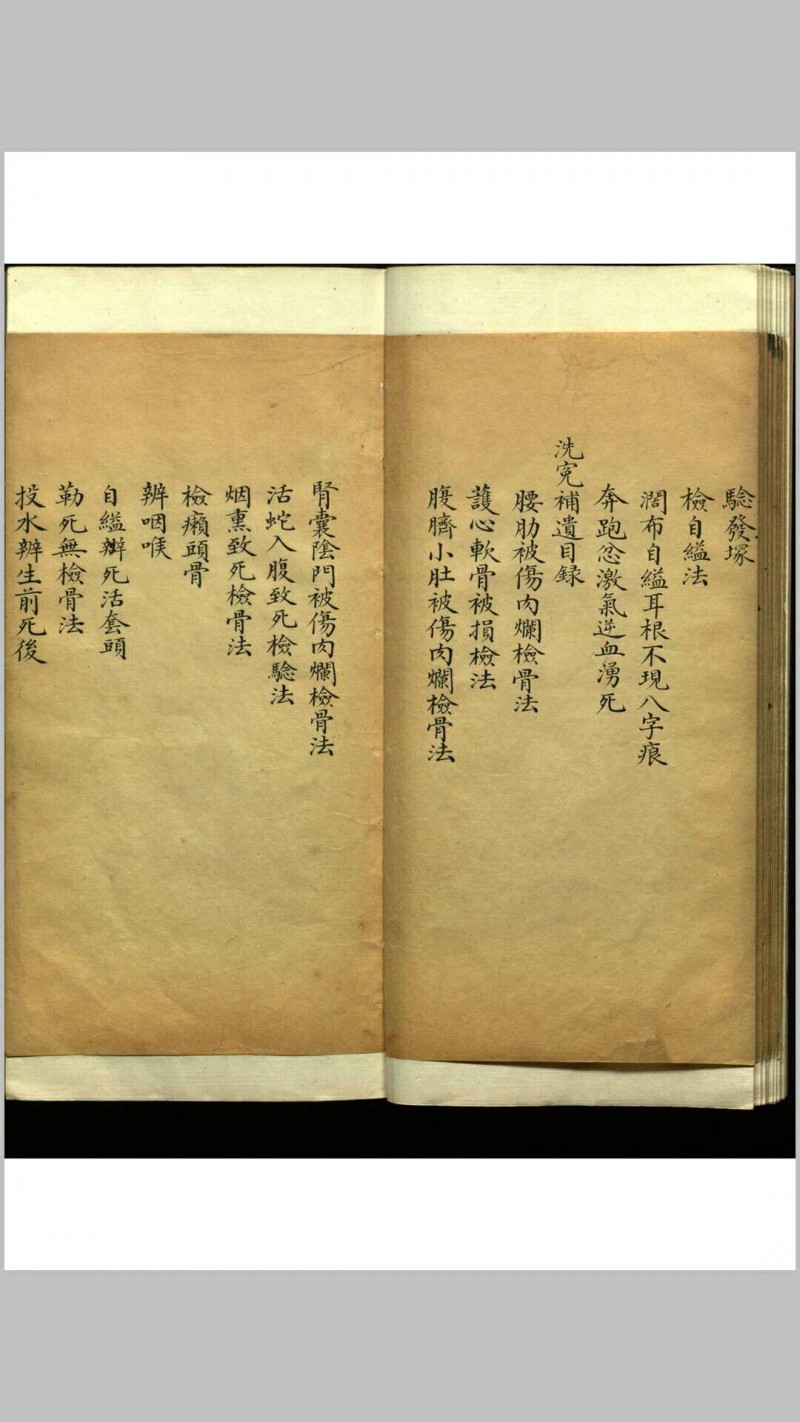 驗發塚
檢自縊法
濶布自縊耳根不現八字痕
奔跑忿激氣逆血湧死
洗寃補遺目録
腰肋被傷肉爛檢骨法
護心軟骨被損檢法
腹臍小肚被傷肉爛檢骨法
腎囊隂門被傷肉爛檢骨法
活蛇入腹致死檢驗法
烟熏致死檢骨法
檢癩頭骨
辨咽喉
自縊辨死活套頭
勒死無檢骨法
投水辨生前死後